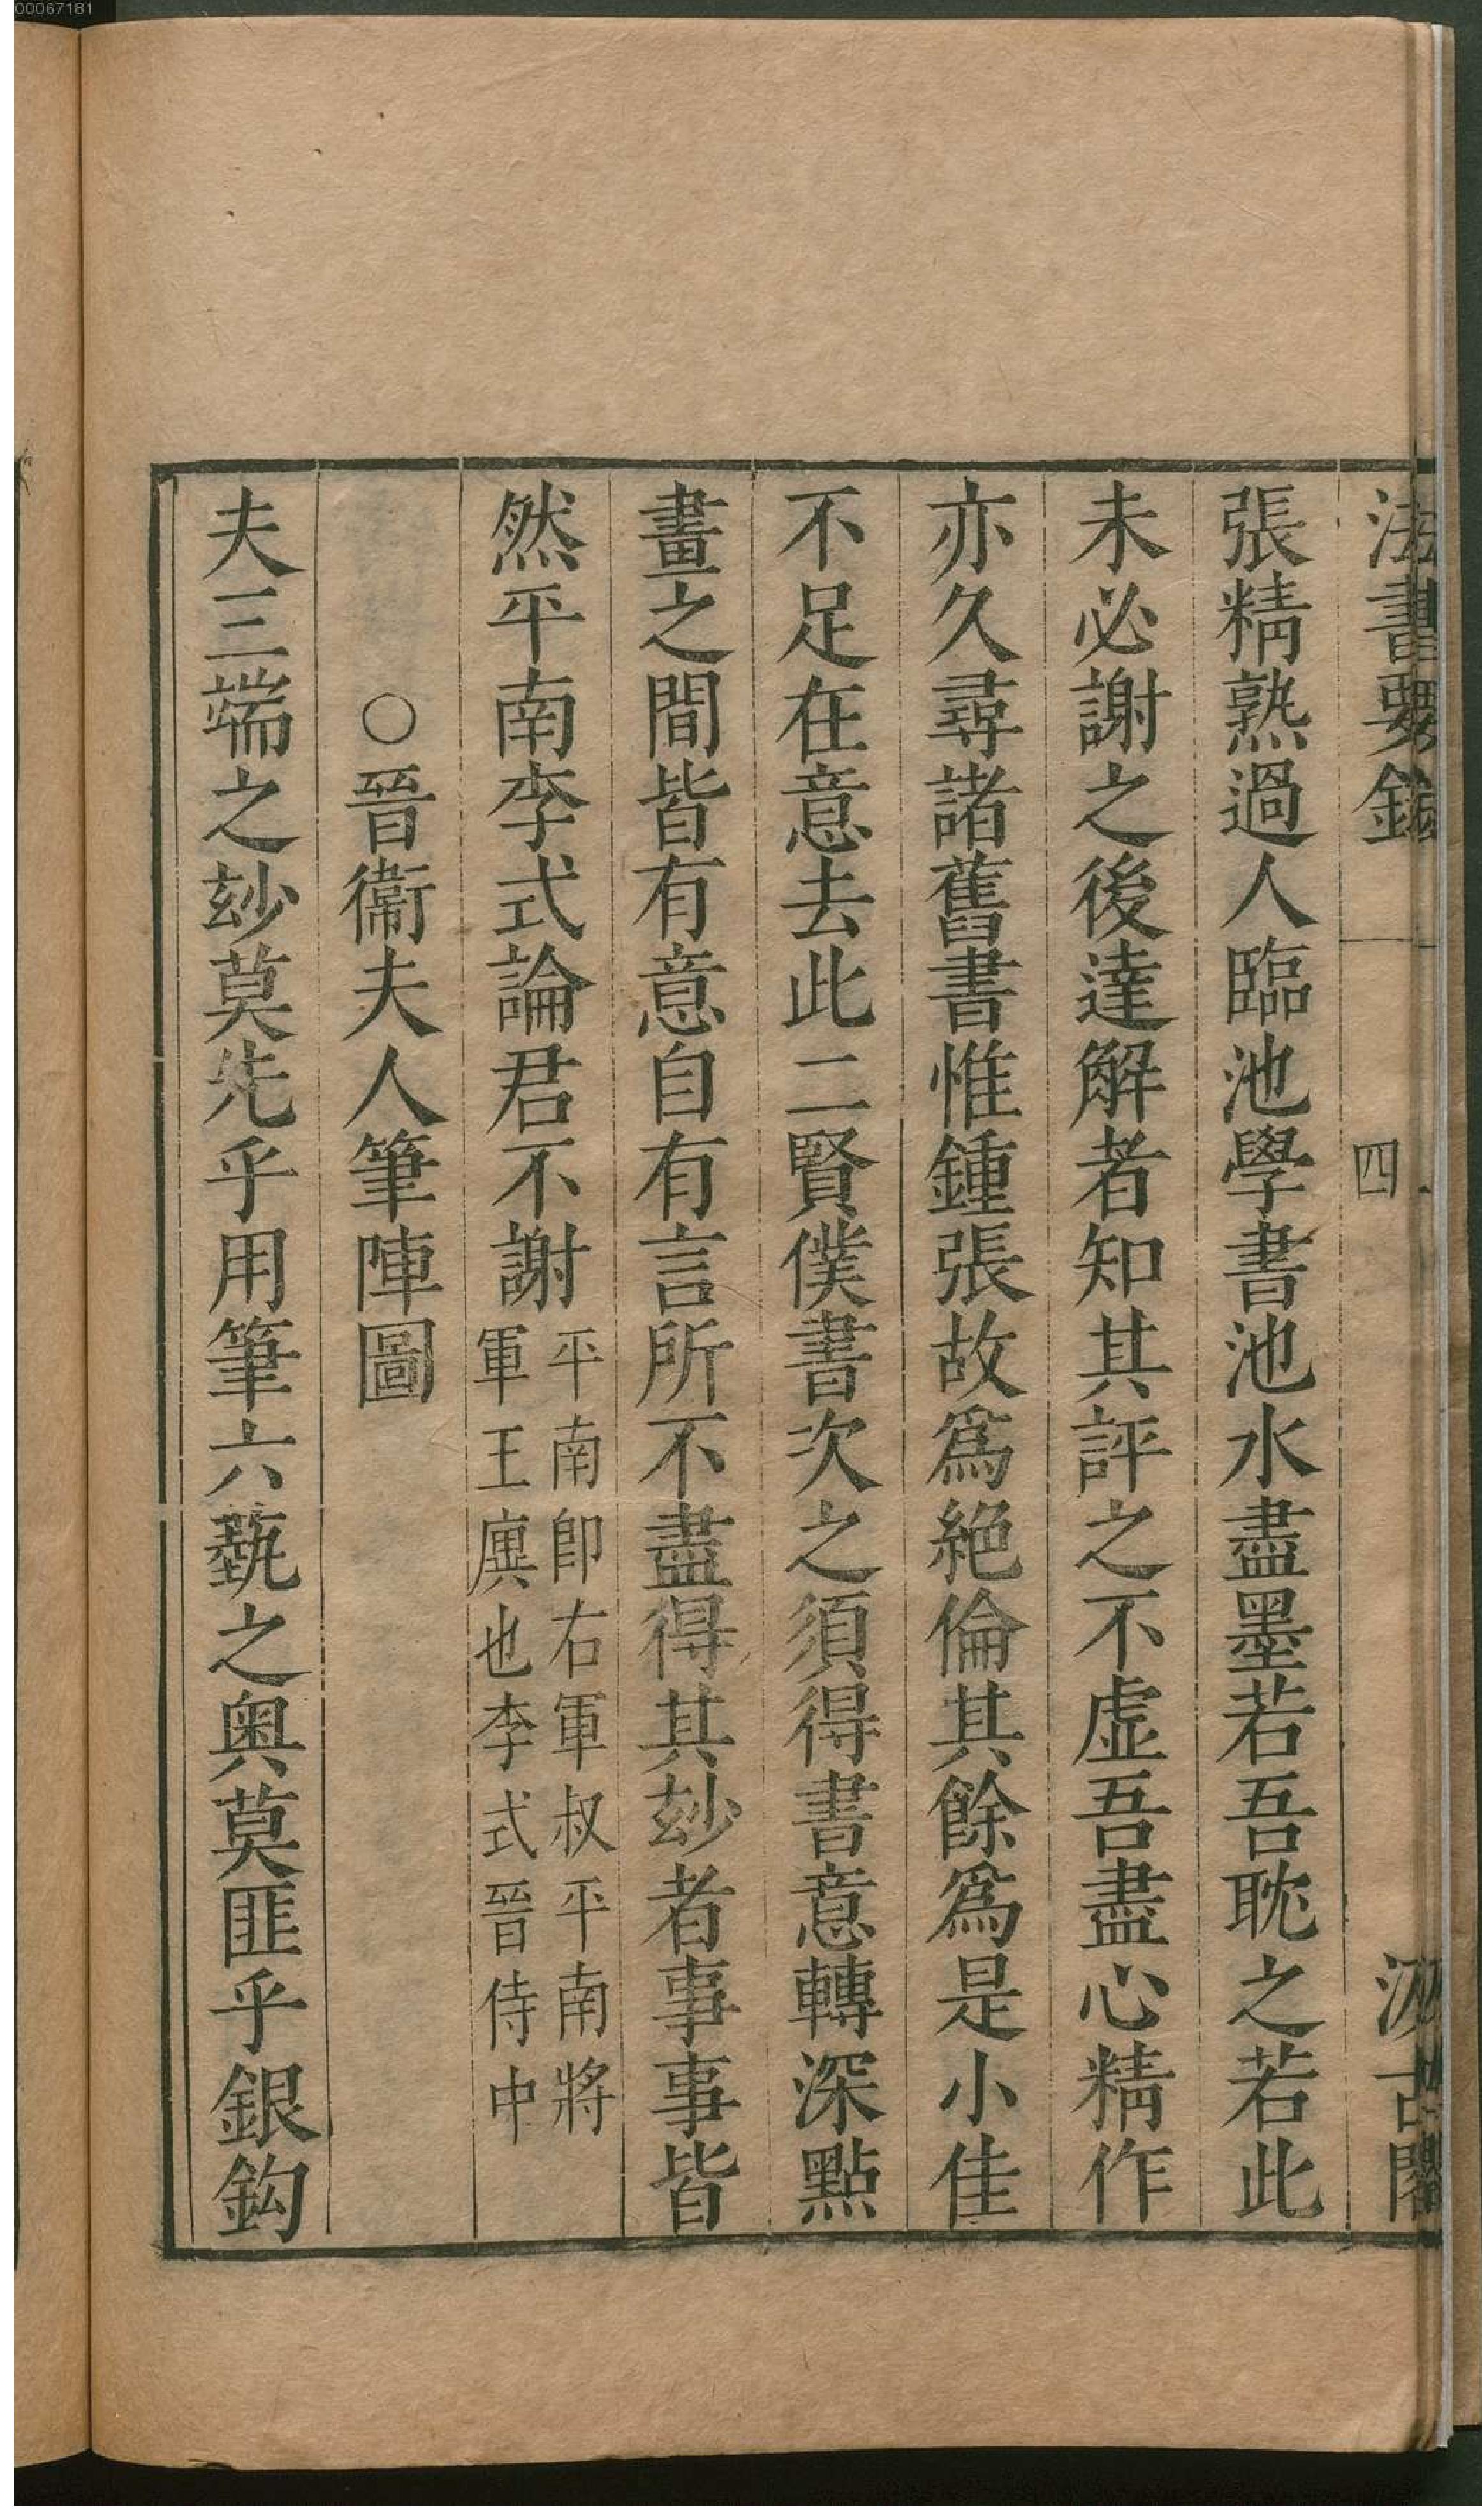 00067181
法書要錄
四
汲古閣
張精熟過人臨池學書池水盡墨若吾耽之若此
未必謝之後達解者知其評之不虛吾盡心精作
亦久尋諸舊書惟鍾張故爲絕倫其餘爲是小佳
不足在意去此二賢僕書次之須得書意轉深點
畫之間皆有意自有言所不盡得其玅者事事皆
然平南李式論君不謝
平南卽右軍叔平南將
軍王廙也李式晉侍中
○晉衞夫人筆陣圖
夫三端之玅莫先乎用筆六藝之奧莫匪乎銀鈎